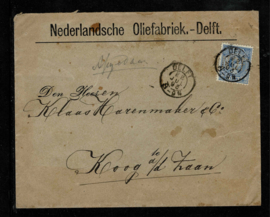 Nederlandsche Oliefabriek.-Delft.
DELFT
Den Heeren
Klaas Karenmaker & C:
Koog a/d Zaan